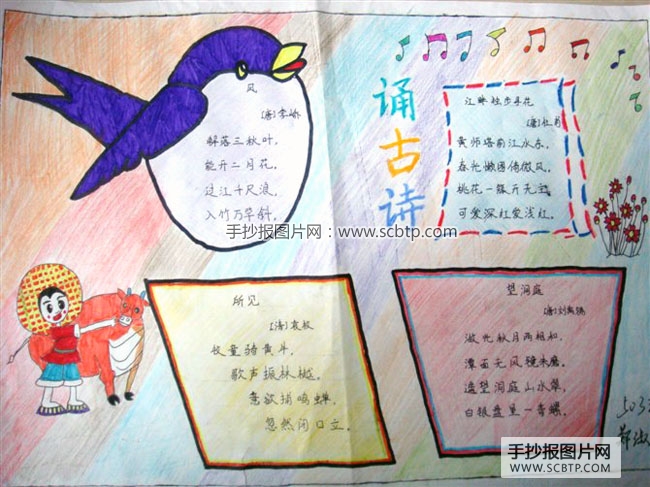 诵古诗
风
[唐]李峤
解落三秋叶,
能开二月花,
过江千尺浪,
入竹万竿斜,
江畔独步寻花
[唐]杜甫
黄师塔前江水东,
春光懒困倚微风,
桃花一簇开无主
可爱深红爱浅红,
手抄报图片网:www.scbtp.com
所见
[清]袁枚
牧童骑黄牛,
歌声振林樾,
意欲捕鸣蝉,
忽然闭口立,
望洞庭
[唐]刘禹锡
湖光秋月两相和,
潭面无风镜未磨,
遥望洞庭山水翠,
白银盘里一青螺,
手抄报图片网
WWW.SCBTP.COM